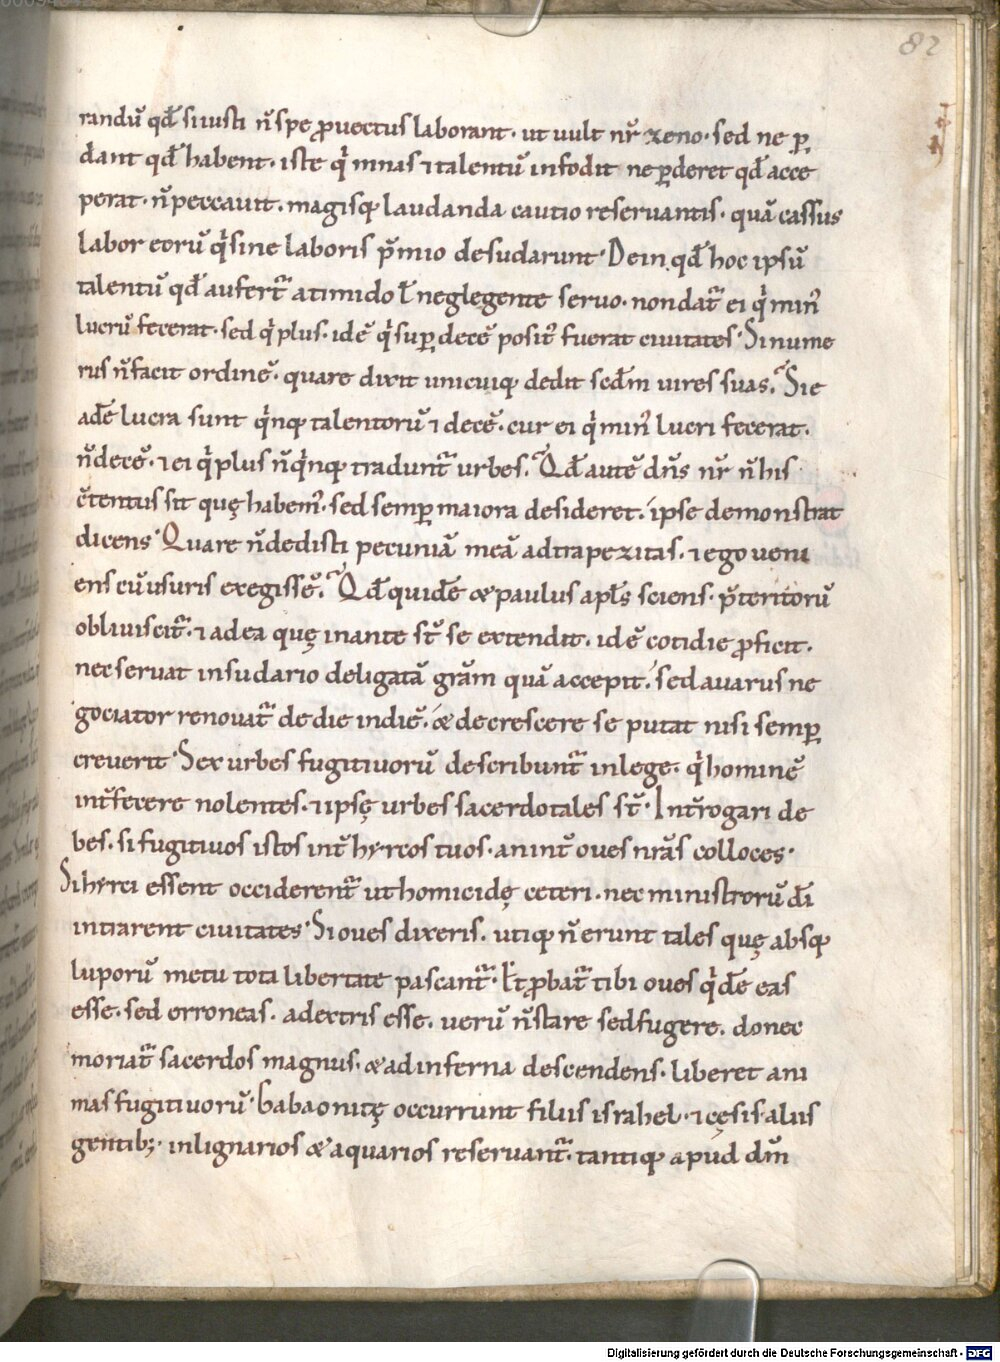 82
randū qđ si iusti n̄ spe ꝓuectus laborant. ut uult nr̄ zeno. sed ne ꝑ
dant qđ habent. iste qͥ mnas ⁊ talentū infodit ne ꝑderet qđ acce
perat. n̄ peccauit. magisq; laudanda cautio reseruantis. quā cassus
labor eorū qͥ sine laboris p̄mio desudarunt. Dein qđ hoc ipsū
talentū qđ aufert᷑ a timido ł neglegente seruo. non dat᷑ ei qͥ min᷒
lucrū fecerat. sed qͥ plus. idē qͥ suꝑ decē posit᷒ fuerat ciuitates. Si nume
rus n̄ facit ordinē. quare dixit unicuiq; dedit secđm uires suas. Sic
adē lucra sunt qͥnq; talentorū ⁊ decē. cur ei qͥ min᷒ lucri fecerat.
n̄ decē. ⁊ ei qͥ plus n̄ qͥnq; tradunt᷑ urbes. Qđ autē dn̄s nr̄ n̄ his
c̄tentus sit quę habem᷒. sed semꝑ maiora desideret. ipse demonstrat
dicens. Quare n̄ dedisti pecuniā meā ad trapezitas. ⁊ ego ueni
ens cū usuris exegissē. Qđ quidē & paulus apl̄s sciens. p̄teritorū
obliuiscit᷑. ⁊ ad ea quę in ante st̄ se extendit. idē cotidie ꝓficit.
nec seruat in sudario deligatā grām quā accepit. sed auarus ne
gociator renouat᷑ de die in diē. & decrescere se putat nisi semꝑ
creuerit. Sex urbes fugitiuorū describunt᷑ in lege. qͥ hominē
int̄fecere nolentes. ⁊ ipsę urbes sacerdotales st̄. Int̄rogari de
bes. si fugitiuos istos int̄ hyrcos tuos. an int̄ oues nrās colloces.
Si hyrci essent occiderent᷑ ut homicidę ceteri. nec ministrorū dī
intrarent ciuitates. Si oues dixeris. utiq; n̄ erunt tales quę absq;
luporū metu tota libertate pascant᷑. Et ꝓbat᷑ tibi oues qͥdē eas
esse. sed erroneas. a dextris esse. uerū n̄ stare sed fugere. donec
moriat᷑ sacerdos magnus. & ad inferna descendens. liberet ani
mas fugitiuorū. Gabaonitę occurrunt filiis israhel. ⁊ cęsis aliis
gentib;. in lignarios & aquarios reseruant᷑. tantiq; apud dm̄
Digitalisierung gefördert durch die Deutsche Forschungsgemeinschaft - DFG